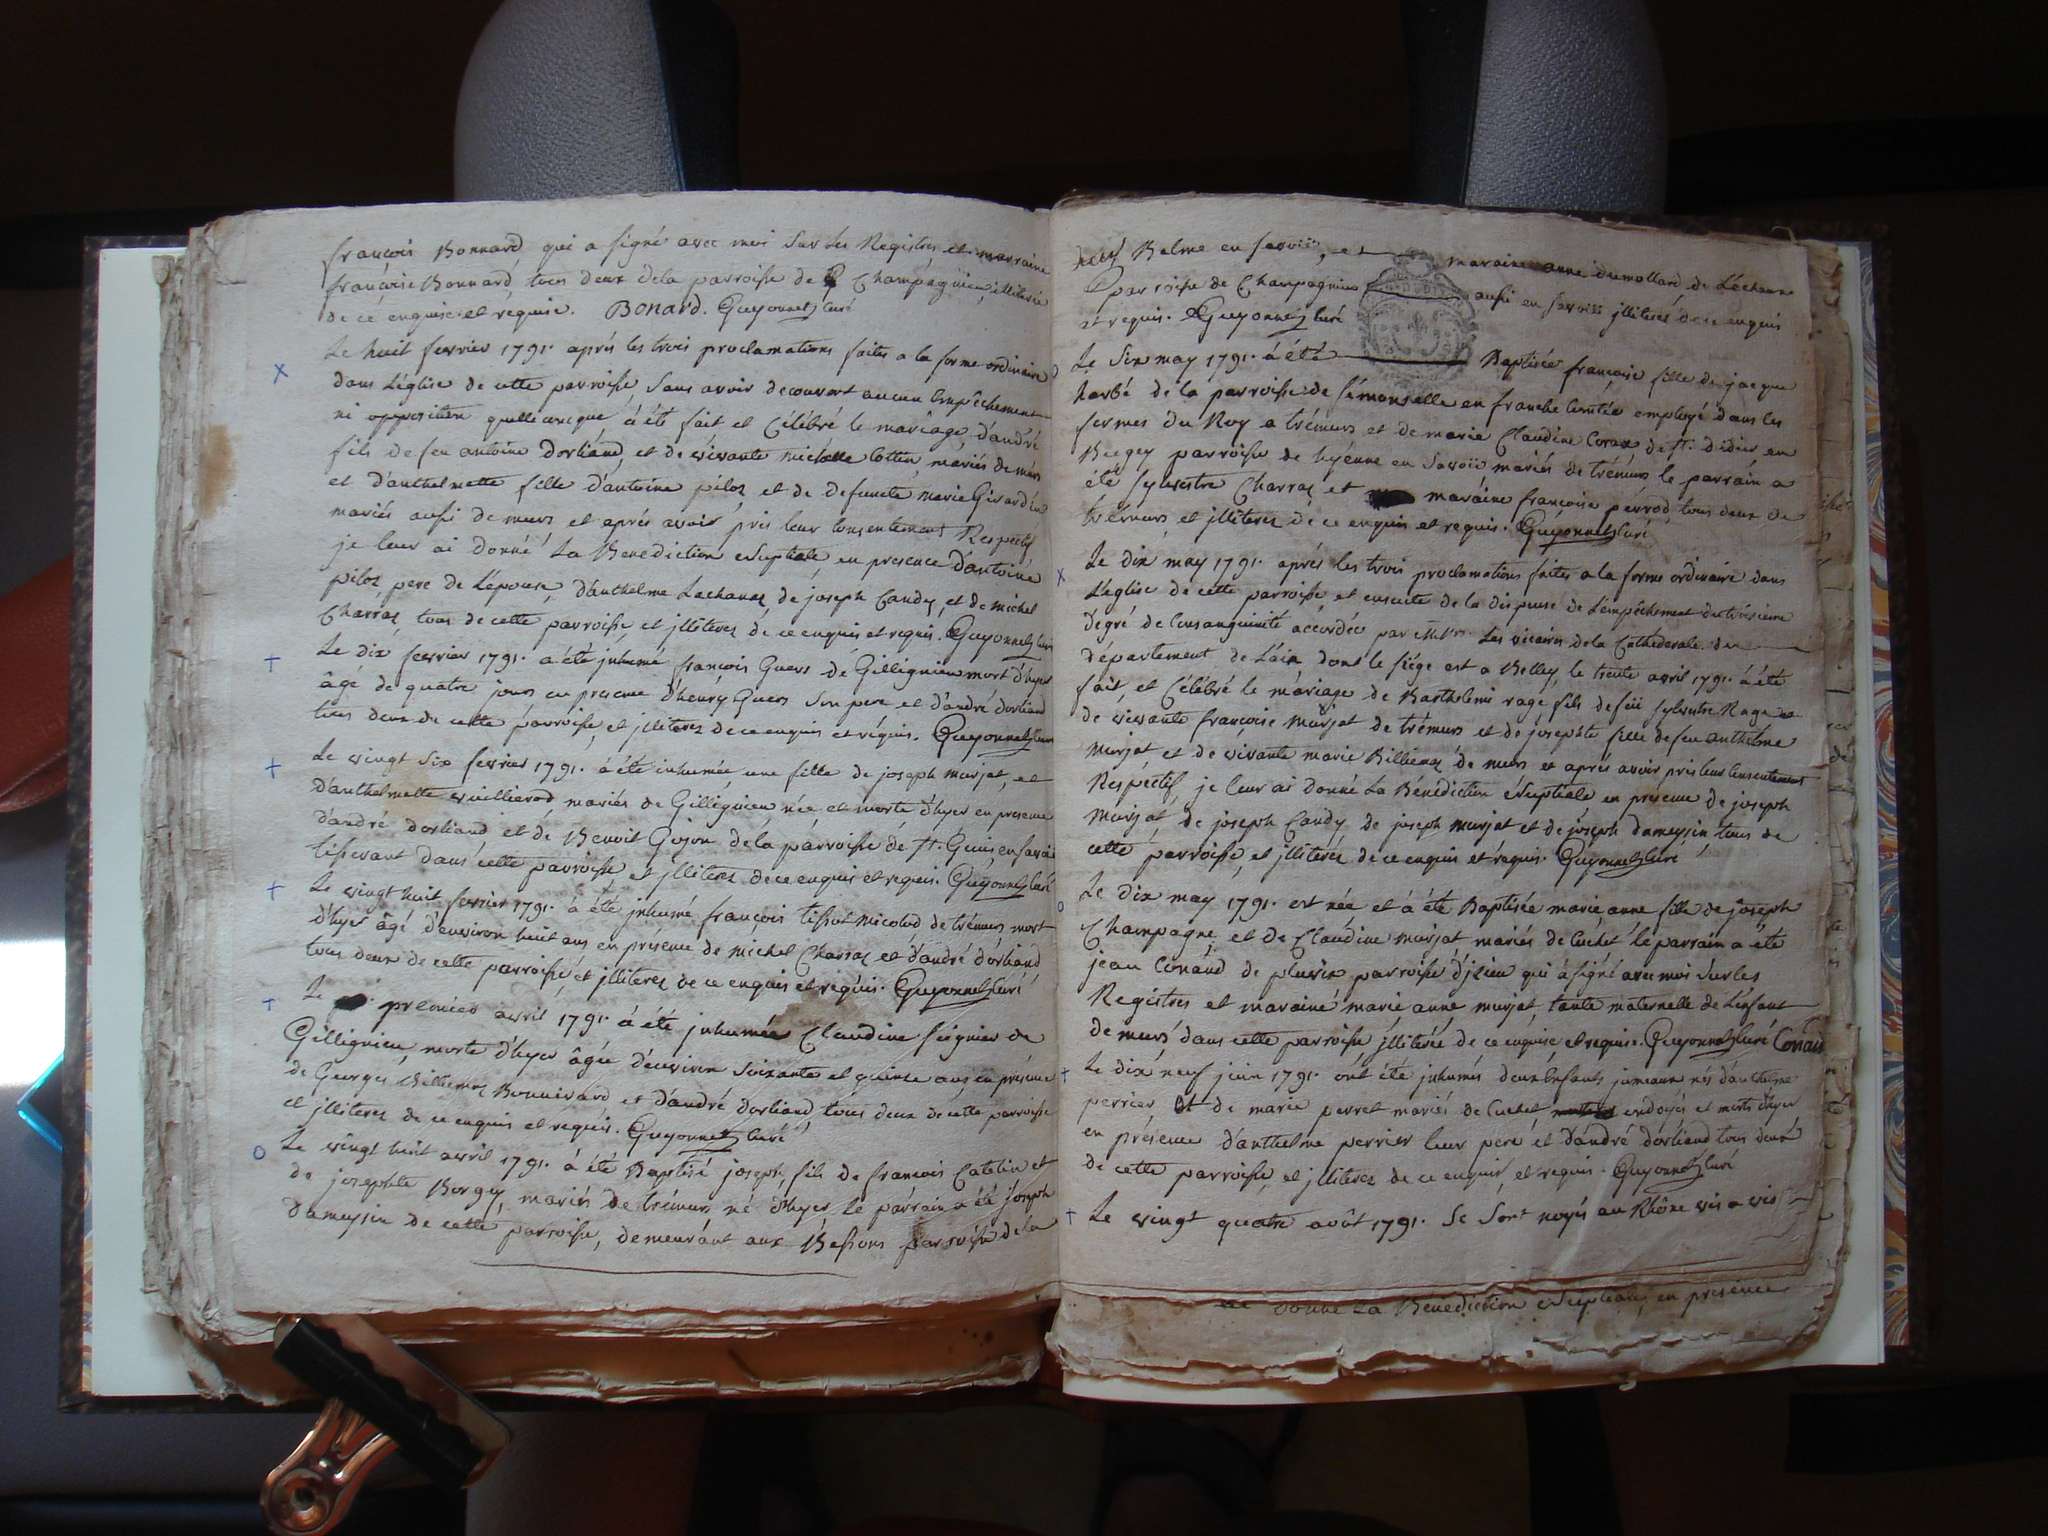 françois Bonnard qui a signé avec moi sur les Registres, et marraine
françoise Bonnard, tous deux de la parroisse de Champagnieu, illiterée
de ce enquise et requise. Bonard. Guyonnet, curé
Le huit fevrier 1791. aprés les trois proclamations faites a la forme ordinaire
dans L'église de cette parroisse, sans avoir decouvert aucun Empêchement
ni opposition quelleconque, à été fait et Célébré le mariâge, d'andré
fils de feu antoine Dorliand, et de vivante michelle Cottin, mariés de murs
et d'anthelmette fille d'antoine piloz et de defuncte marie Girardin
mariés aussi de murs et aprés avoir pris leur Consentement Respectif
je leur ai donné La Benediction Nuptiale en presence D'antoine
piloz pere de L'épouse, d'anthelme Lachanaz, de joseph Candy, et de michel
Charraz tous de cette parroisse et jlliterez de ce enquis et requis. Guyonnet, curé
Le dix fevrier 1791. a été juhumé françois Guers de Gillignieu mort d'hyer
âgé de quatre jours en presence d'henry Guers son pere et d'andré dorliand
tous deux de cette parroisse, et jlliterez de ce enquis et réquis. Guyonnet, curé
Le vingt six fevrier 1791. à été inhumée une fille de joseph murjat, et
d'anthelmette vuillierod mariés de Gillignieu née et morte d'hyer en presence
d'andré dorliand et de Benoit Gojon de la parroisse de St. Genis en savoie
tisserant dans cette parroisse et jlliterez de ce enquis et requis. Guyonnet, curé
Le vingt huit fevrier 1791. à été juhumé françois tissot micoloud de trémurs mort
d'hyer âgé d'environ huit ans en présence de michel Charraz et d'andré dorliand
tous deux de cette parroisse, et jlliterez de ce enquis et réquis. Guyonnet, curé
Le premier avril 1791. à été juhumée Claudine seignier de
Gillignieu, morte d'hyer âgée d'environ soixante et quinze ans en présence
de Georges Billiemaz Bonnivard et d'andré dorliand, tous deux de cette parroisse
et jlliterez de ce enquis et requis. Guyonnet, curé
Le vingt huit avril 1791. à été Baptisé joseph, fils de françois Catelin et
de josephte Borgey mariés de trémurs né d'hyer le parrain a été joseph
Dameysin de cette parroisse, demeurant aux Bessons parroisse de la
Balme en savoiïe, et maraine anne dumollard de Léchanne
parroisse de Champagnieu aussi en savoiïe jlliterés de ce enquis
et requis. Guyonnet, curé
Le Six may 1791. à été Baptisée françoise fille de jacque
barbé de la parroisse de sémonselle en franche Comtée employé dans les
fermes du Roy a trémurs et de marie Claudine Coraz de St. didier en
Beugey parroisse de hyénne en Savoiïe mariés de trémurs le parrain a
été sylvestre Charraz et maraine françoise perrod, tous deux de
trémurs et jlliterez de ce enquis et requis. Guyonnet, curé
Le dix may 1791. aprés les trois proclamations faites a la forme ordinaire dans
L'église de cette parroisse, et ensuite de la dispense de L'empêchement du troisieme
dégré de Consanguinité accordée par Mrs. Les vicaires de la Cathederale du
département de L'ain dont le siége est a Belley, le trente avril 1791. à été
fait, et Célébré le mariage de Barthelemi rage fils de feü sylvestre Rage et
de vivante françoise murjat de trémurs et de josephte fille de feu anthelme
murjat et de vivante marie Billiemaz de murs et aprés avoir pris leur Consentement
Respéctif je leur ai donné La Bénédiction Nuptiale en présence de joseph
murjat, de joseph Candy, de joseph murjat et de joseph dameysin, tous de
cette parroisse, et jlliterés de ce enquis et requis. Guyonnet, curé
Le dix may 1791. est née et à été Baptisée marie anne fille de joseph
Champagne, et de Claudine murjat mariés de Cuchet le parrain a été
jean Conand de pluvix parroisse d'jsieu qui à signé avec moi sur les
Registres et maraine marie anne murjat, tante maternelle de L'enfant
de murs dans cette parroisse jlliterée de ce enquise, et requise. Guyonnet, curé Conan
Le dix neuf juin 1791. ont été juhumés deux Enfants jumeaux nés d'anthelme
perrier et de marie perret mariés de Cuchet endoyés et morts d'hyer
en présence d'anthelme perrier leur pere et d'andré dorliand tous deux
de cette parroisse, et jlliterez de ce enquis, et requis. Guyonnet, curé
Le vingt quatre août 1791. Se sont noyés au Rhône vis a vis
donné La Bénédiction Nuptiale, en présence